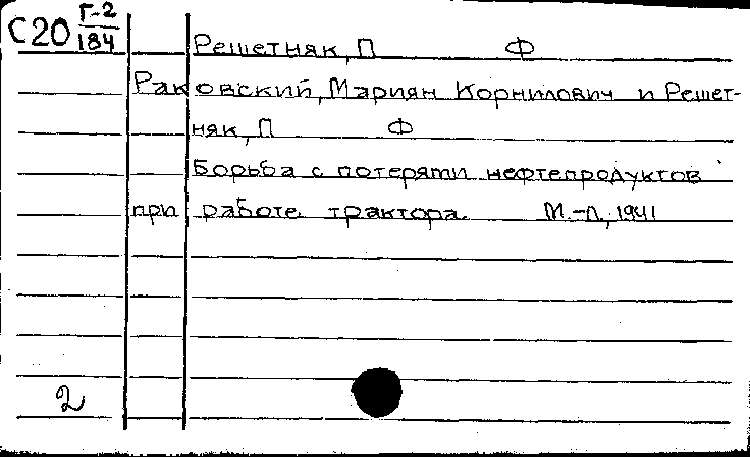 С20 Г-2/184
Решетняк, П Ф
Раковский, Мариян Корнилович и Решет-
няк, П Ф
Борьба с потерями нефтепродуктов
при работе трактора. М.-Л, 1941
2